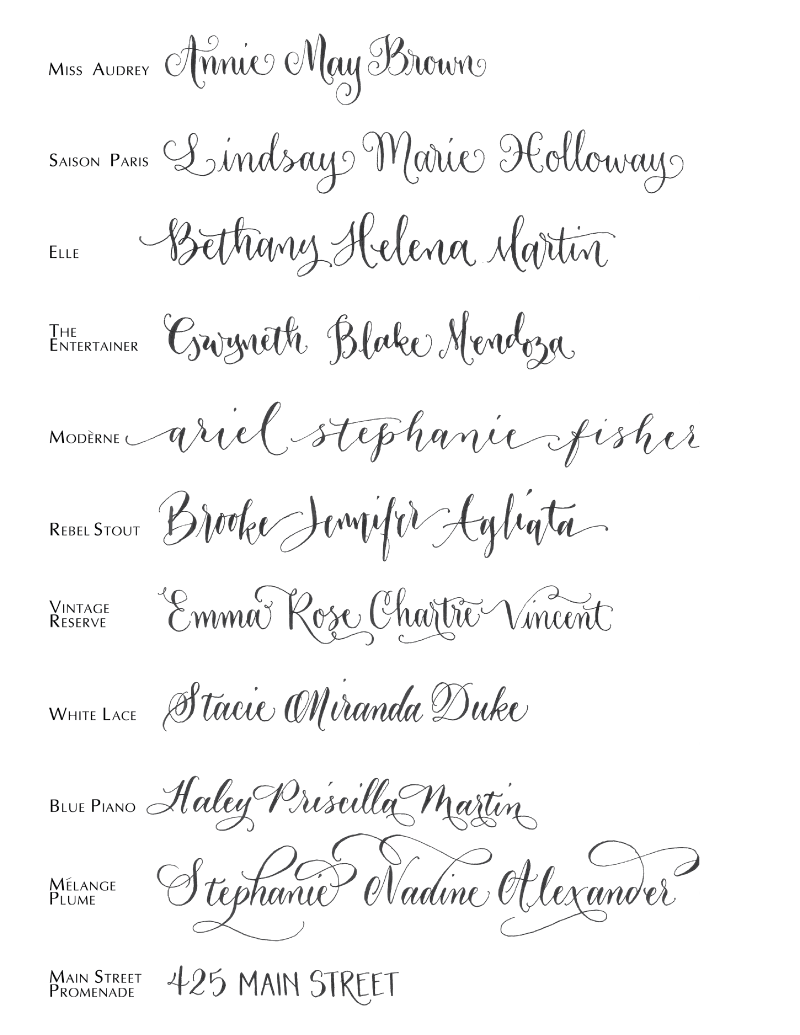 Miss Audrey Annie May Brown
Saison Paris Lindsay Marie Holloway
Elle Bethany Helena Martin
The
Entertainer Gwyneth Blake Mendoza
Modèrne ariel stephanie fisher
Rebel Stout Brooke Jennifer Agliata
Vintage
Reserve Emma Rose Chartre Vincent
White Lace Stacie Miranda Duke
Blue Piano Haley Priscilla Martin
Mélange
Plume Stephanie Nadine Alexander
Main Street
Promenade 425 MAIN STREET